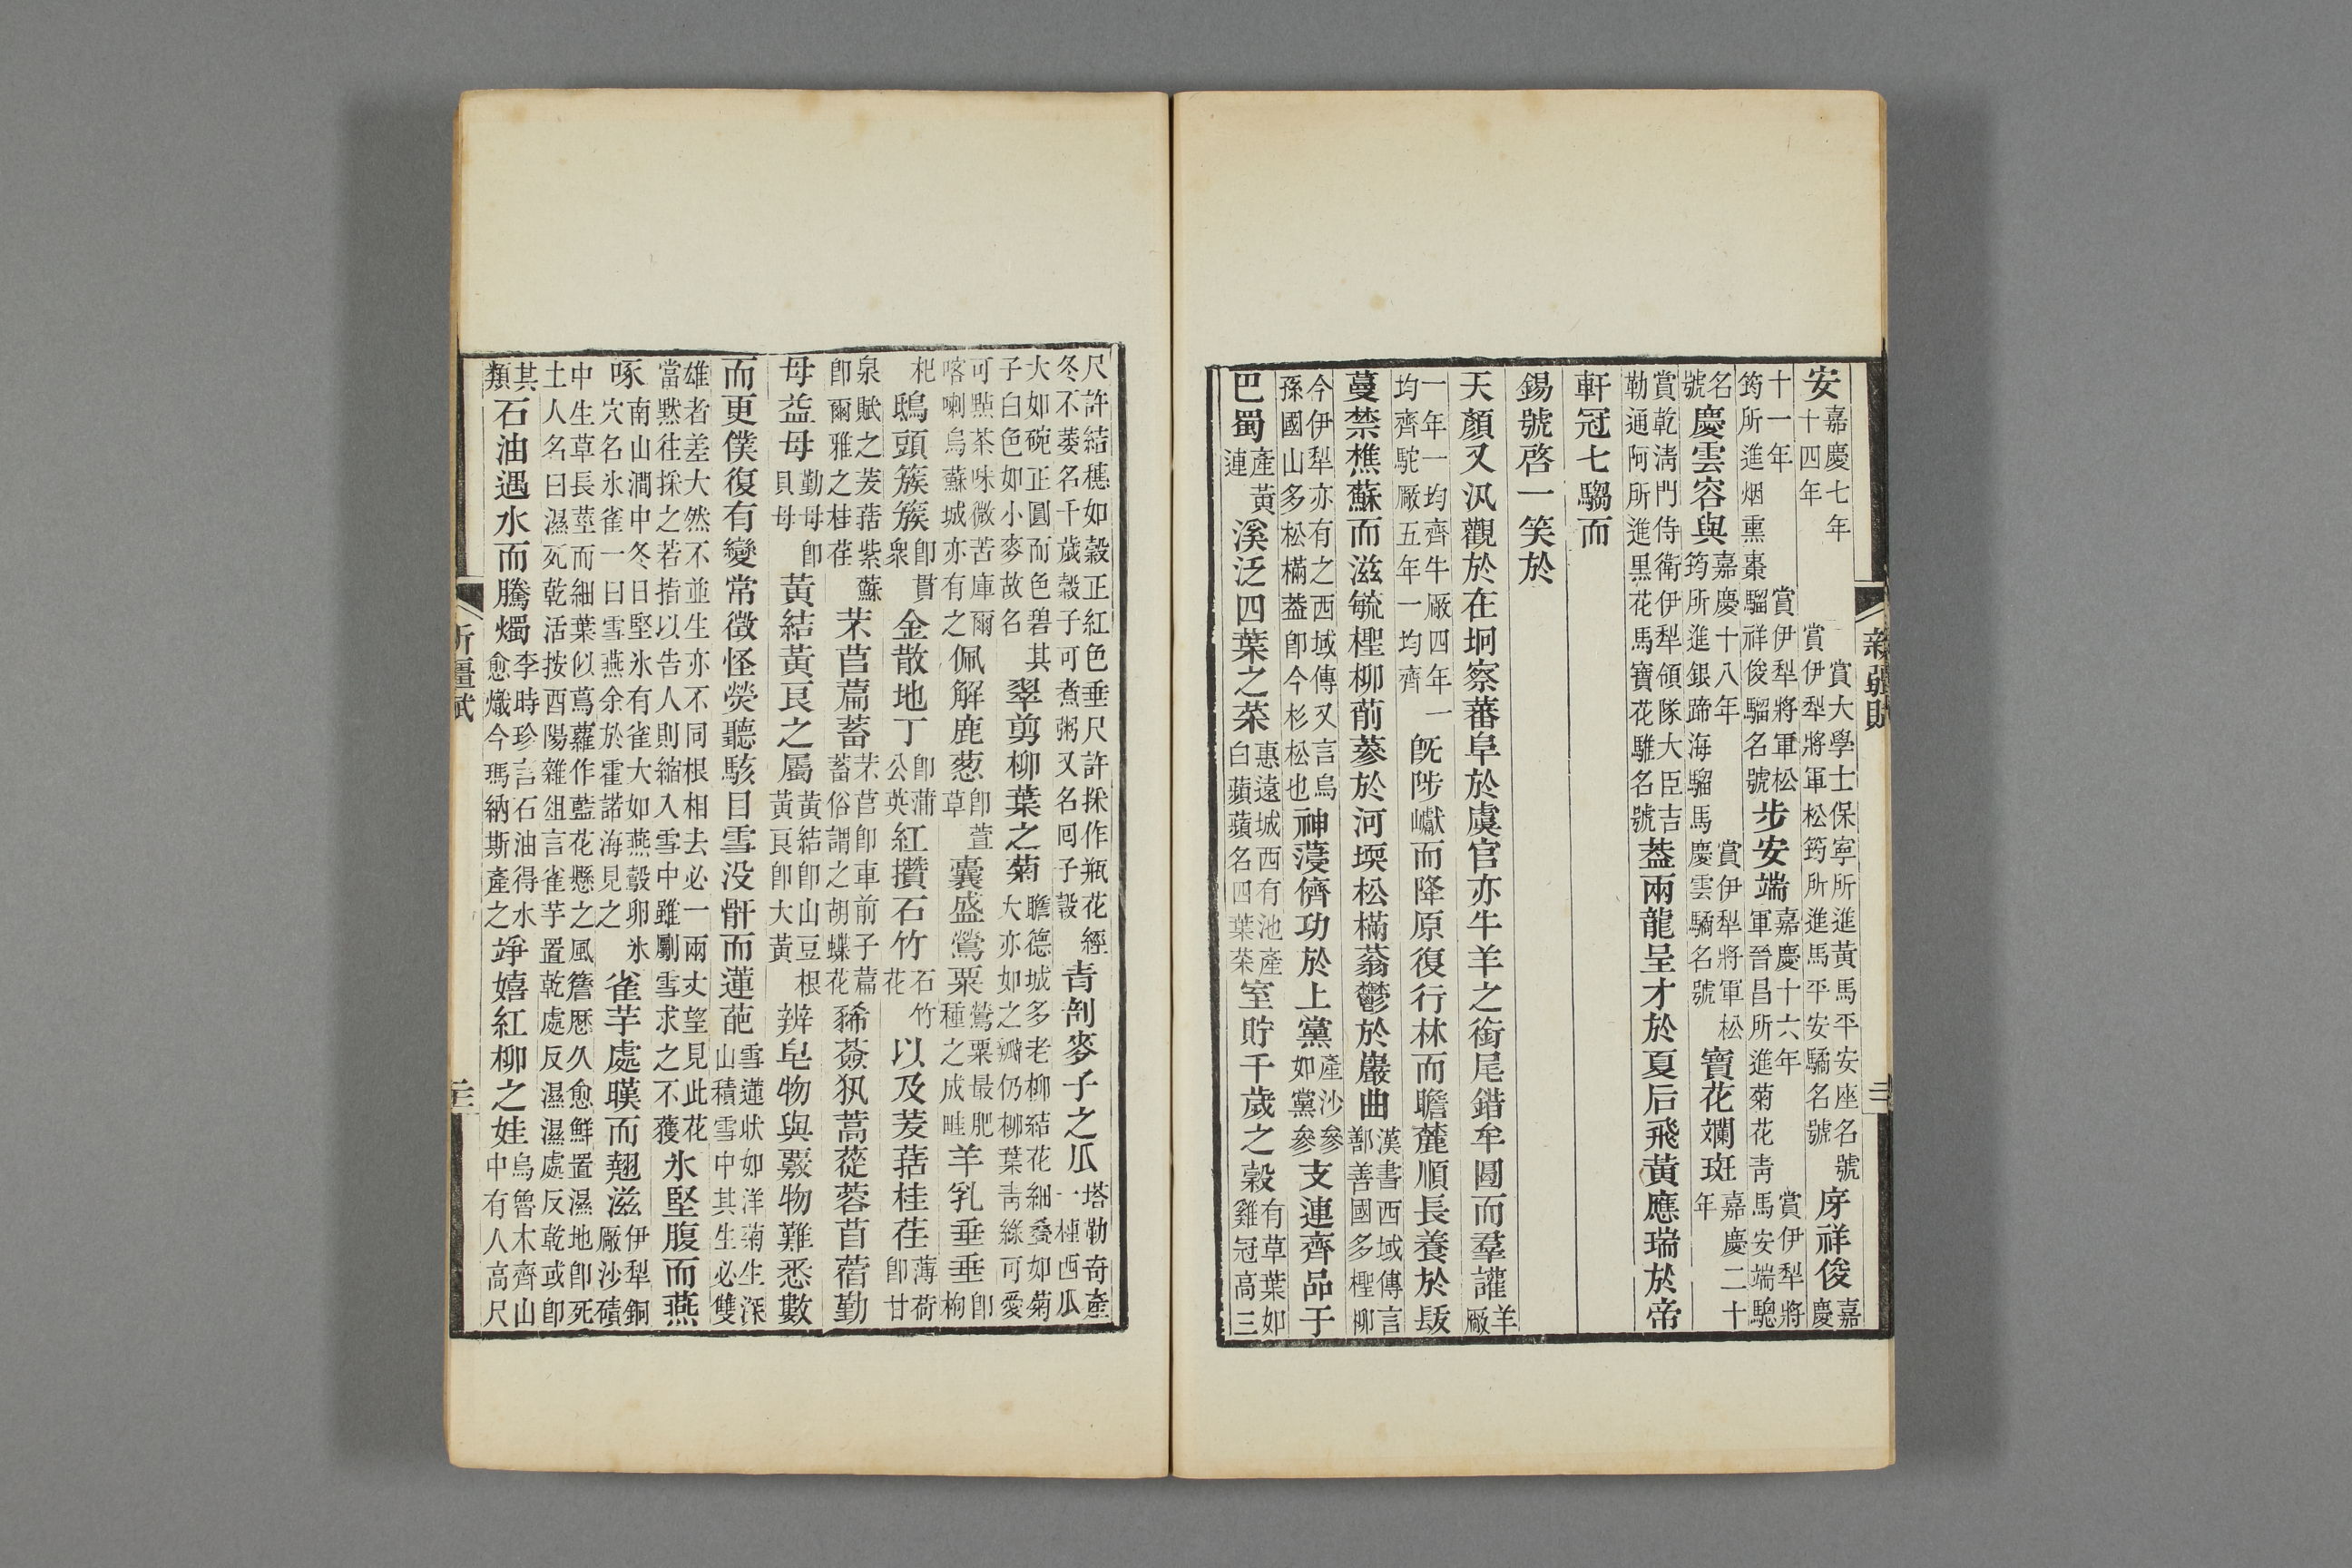 新疆賦
安嘉慶七年賞大學士保寧所進黃馬平安座名號十四年賞伊犁將軍松筠所進馬平安驕名號房祥俊嘉慶
十一年賞伊犁將軍松筠所進烟熏棗騮祥俊騮名號步安端嘉慶十六年賞伊犁將軍晉昌所進菊花青馬安端驄
名號慶雲容與嘉慶十八年賞伊犁將軍松筠所進銀蹄海騮馬慶雲驕名號寶花斕斑嘉慶二十年
賞乾淸門侍衛伊犁領隊大臣吉勒通阿所進黑花馬寶花騅名號葢兩龍呈才於夏后飛黃應瑞於帝
軒冠七騶而
錫號啓一笑於
天顏又汎觀於在坰察蕃阜於虞官亦牛羊之銜尾錯牟圖而羣讙羊厰
一年一均齊牛厰四年一均齊駝厰五年一均齊旣陟巘而降原復行林而瞻麓順長養於昄
蔓禁樵蘇而滋毓檉柳前蔘於河堧松樠蓊鬱於巖曲漢書西域傳言鄯善國多檉柳
今伊犁亦有之西域傳又言烏孫國山多松樠葢卽今杉松也神蓡儕功於上黨產沙參如黨參支連齊品于
巴蜀產黃連溪泛四葉之菜惠遠城西有池產白蘋蘋名四葉菜室貯千歲之穀有草葉如雞冠高三
尺許結穗如穀正紅色垂尺許採作瓶花經冬不萎名千歲穀子可煮粥又名回子穀靑剳麥子之瓜塔勒奇產一種西瓜
大如碗正圓而色碧其子白色如小麥故名翠剪柳葉之菊瞻德城多老柳結花細疊如菊大亦如之瓣仍柳葉靑綠可愛
可㸃茶味微苦庫爾喀喇烏蘇城亦有之佩解鹿葱卽萱草囊盛鶯粟鶯粟最肥種之成畦羊乳垂垂卽枸
杞鴟頭簇簇卽貫衆金散地丁卽蒲公英紅攢石竹石竹花以及茇葀桂荏薄荷卽甘
泉賦之茇葀紫蘇卽爾雅之桂荏芣苢萹蓄芣苢卽車前子萹蓄俗謂之胡蝶花豨薟䒢蒿蓯蓉苜蓿勤
母益母勤母卽貝母黃結黃艮之屬黃結卽山豆根黃艮卽大黃辨皂物與覈物難悉數
而更僕復有變常徵怪熒聽駭目雪没骭而蓮葩雪蓮狀如洋菊生深山積雪中其生必雙
雄者差大然不並生亦不同根相去必一兩丈望見此花當黙往採之若指以告人則縮入雪中雖劚雪求之不獲氷堅腹而燕
啄南山澗中冬日堅氷有雀大如燕鷇卵氷穴名氷雀一曰雪燕余於霍諾海見之雀芋處暵而翹滋伊犁銅厰沙磧
中生草長莖而細葉似蔦蘿作藍花懸之風簷歴久愈鮮置濕地卽死土人名曰濕死乾活按酉陽雜俎言雀芋置乾處反濕濕處反乾或卽
其類石油遇水而騰燭李時珍言石油得水愈熾今瑪納斯產之竫嬉紅柳之娃烏魯木齊山中有人高尺
新疆賦